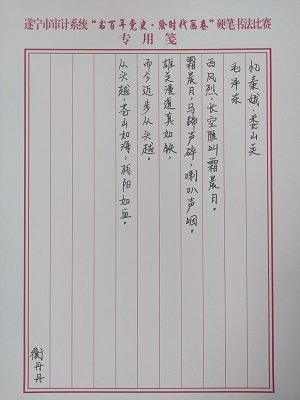 遂宁市审计系统“书百年党史·绘时代画卷”硬笔书法比赛
专用笺
忆秦娥·娄山关
毛泽东
西风烈,长空雁叫霜晨月。
霜晨月,马蹄声碎,喇叭声咽。
雄关漫道真如铁,
而今迈步从头越。
从头越,苍山如海,残阳如血。
衡丹丹